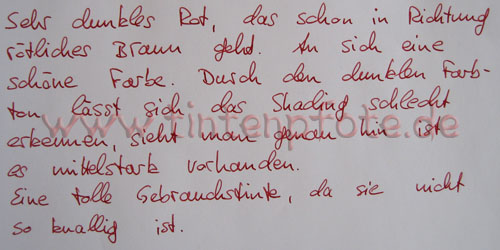 Sehr dunkles Rot, das schon in Richtung
rötliches Braun geht. An sich eine
schöne Farbe. Durch den dunklen Farb-
ton lässt sich das Shading schlecht
www.tintenpfote.de
erkennen, sieht man genau hin ist
es mittelstark vorhanden.
Eine tolle Gebrauchstinte, da sie nicht
so knallig ist.